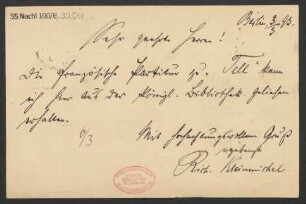 55 Nachl 100/B
Berlin, 3/3 93.
Sehr geehrter Herr!
Die französische Partitur zu „Tell" kann
ich hier aus der Königl. Bibliothek geliehen
erhalten.
6/3
Mit hochachtungsvollem Gruß
ergebenst
Rich. Kleinmichel